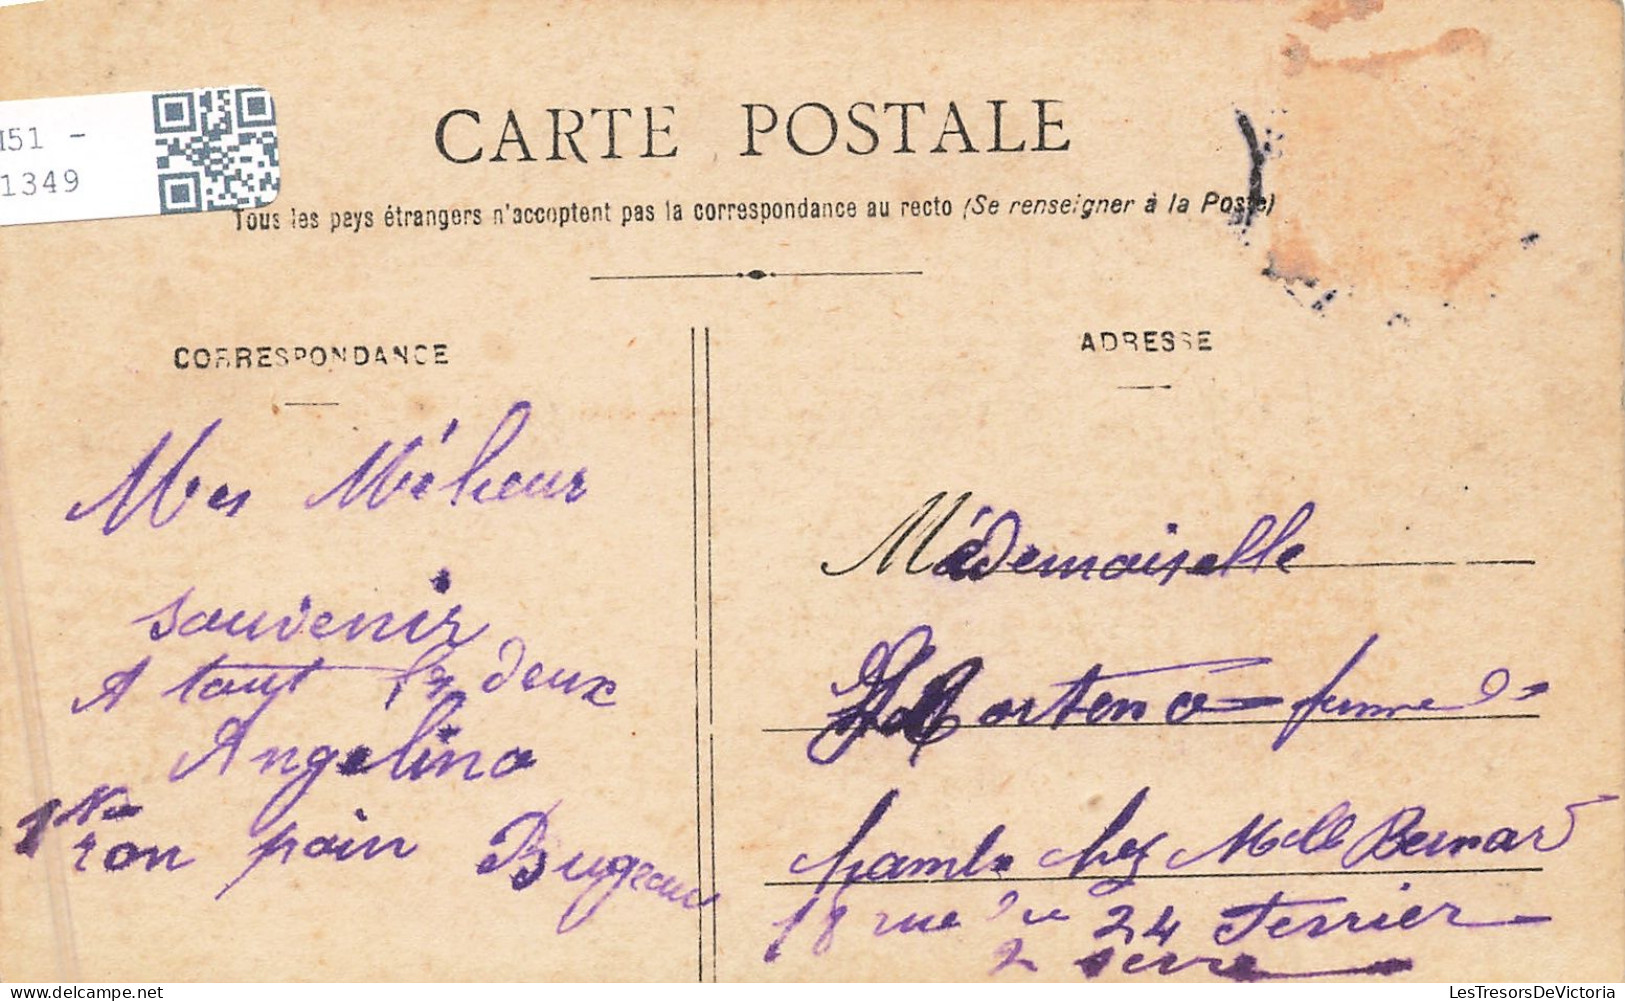 M51 -
1349
CARTE POSTALE
Tous les pays étrangers n'acceptent pas la correspondance au recto (Se renseigner à la Poste)
CORRESPONDANCE
Mes Méheur
souvenir
A tout les deux
Angelina
ron poin Bugeau
ADRESSE
Médemoiselle
Hortence femme de
chambre chez Mlle Bernard
18 rue du 24 Ferrier
LesTresorsDeVictoria